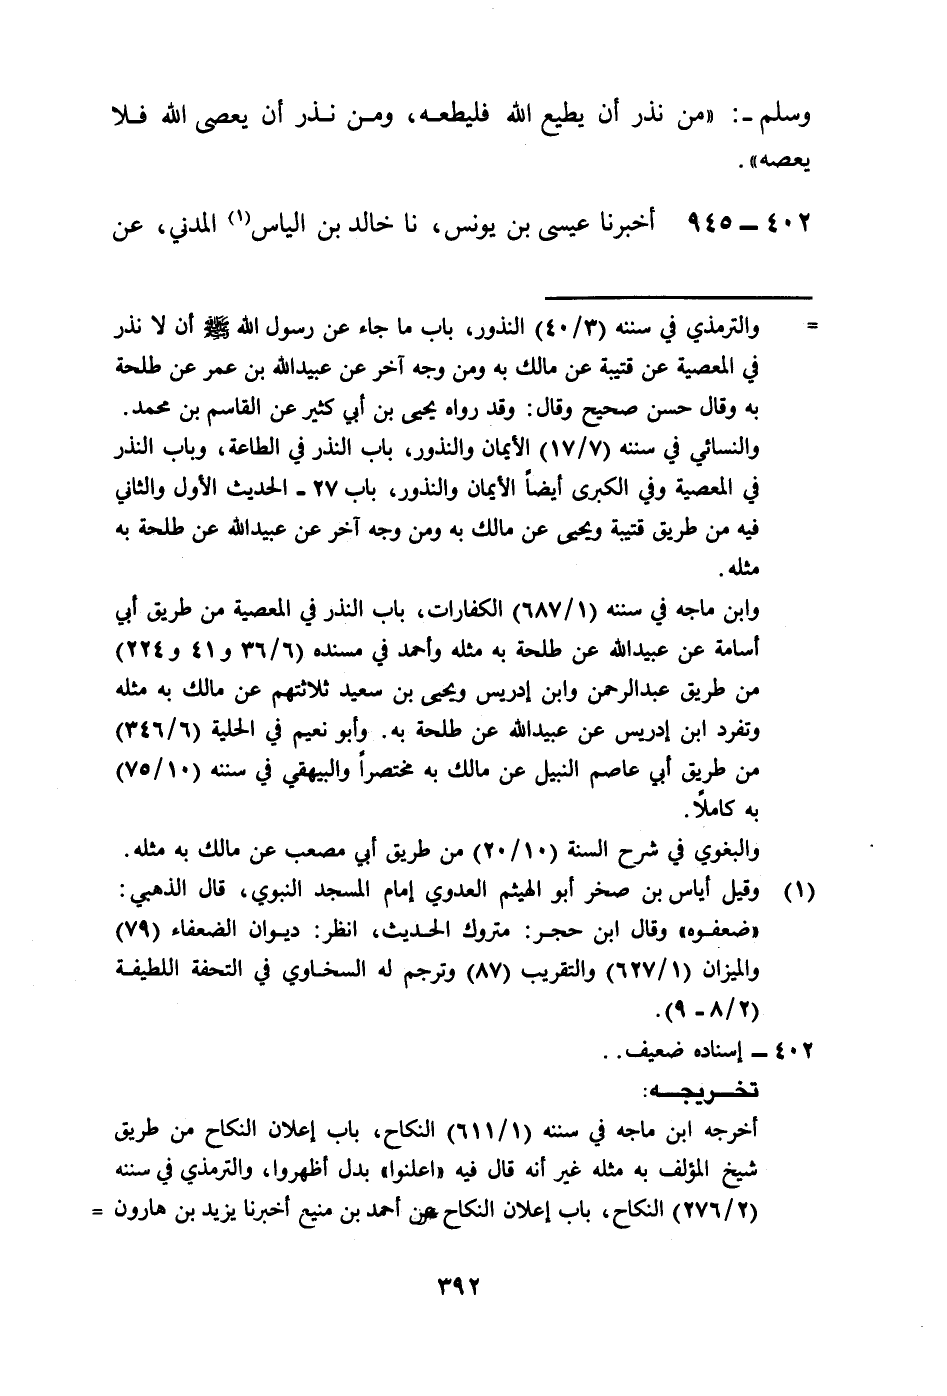 وسلم ـ: «من نذر أن يطيع الله فليطعـه، ومـن نـذر أن يعصى الله فـلا
يعصه».
٤٠٢ ــ ٩٤٥ أخبرنا عيسى بن يونس، نا خالد بن الياس(١) المدني، عن
= والترمذي في سننه (٤٠/٣) النذور، باب ما جاء عن رسول الله ﷺ أن لا نذر
في المعصية عن قتيبة عن مالك به ومن وجه آخر عن عبيدالله بن عمر عن طلحة
به وقال حسن صحيح وقال: وقد رواه يحيى بن أبي كثير عن القاسم بن محمد.
والنسائي في سننه (١٧/٧) الأيمان والنذور، باب النذر في الطاعة، وباب النذر
في المعصية وفي الكبرى أيضاً الأيمان والنذور، باب ٢٧ ـ الحديث الأول والثاني
فيه من طريق قتيبة ويحيى عن مالك به ومن وجه آخر عن عبيدالله عن طلحة به
مثله.
وابن ماجه في سننه (٦٨٧/١) الكفارات، باب النذر في المعصية من طريق أبي
أسامة عن عبيدالله عن طلحة به مثله وأحمد في مسنده (٣٦/٦ و٤١ و٢٢٤)
من طريق عبدالرحمن وابن إدريس ويحيى بن سعيد ثلاثتهم عن مالك به مثله
وتفرد ابن إدريس عن عبيدالله عن طلحة به. وأبو نعيم في الحلية (٣٤٦/٦)
من طريق أبي عاصم النبيل عن مالك به مختصراً والبيهقي في سننه (٧٥/١٠)
به كاملاً.
والبغوي في شرح السنة (٢٠/١٠) من طريق أبي مصعب عن مالك به مثله.
(١) وقيل أياس بن صخر أبو الهيثم العدوي إمام المسجد النبوي، قال الذهبي:
«ضعفـوه» وقال ابن حجـر: متروك الحـديث، انظر: ديـوان الضعفاء (٧٩)
والميزان (٦٢٧/١) والتقريب (٨٧) وترجم له السخـاوي في التحفة اللطيفـة
(٨/٢ ـ ٩).
٤٠٢ ــ إسناده ضعيف..
تخـــريجـــه:
أخرجه ابن ماجه في سننه (٦١١/١) النكاح، باب إعلان النكاح من طريق
شيخ المؤلف به مثله غير أنه قال فيه «اعلنوا» بدل أظهروا، والترمذي في سننه
(٢٧٦/٢) النكاح، باب إعلان النكاح عن أحمد بن منيع أخبرنا يزيد بن هارون =
٣٩٢